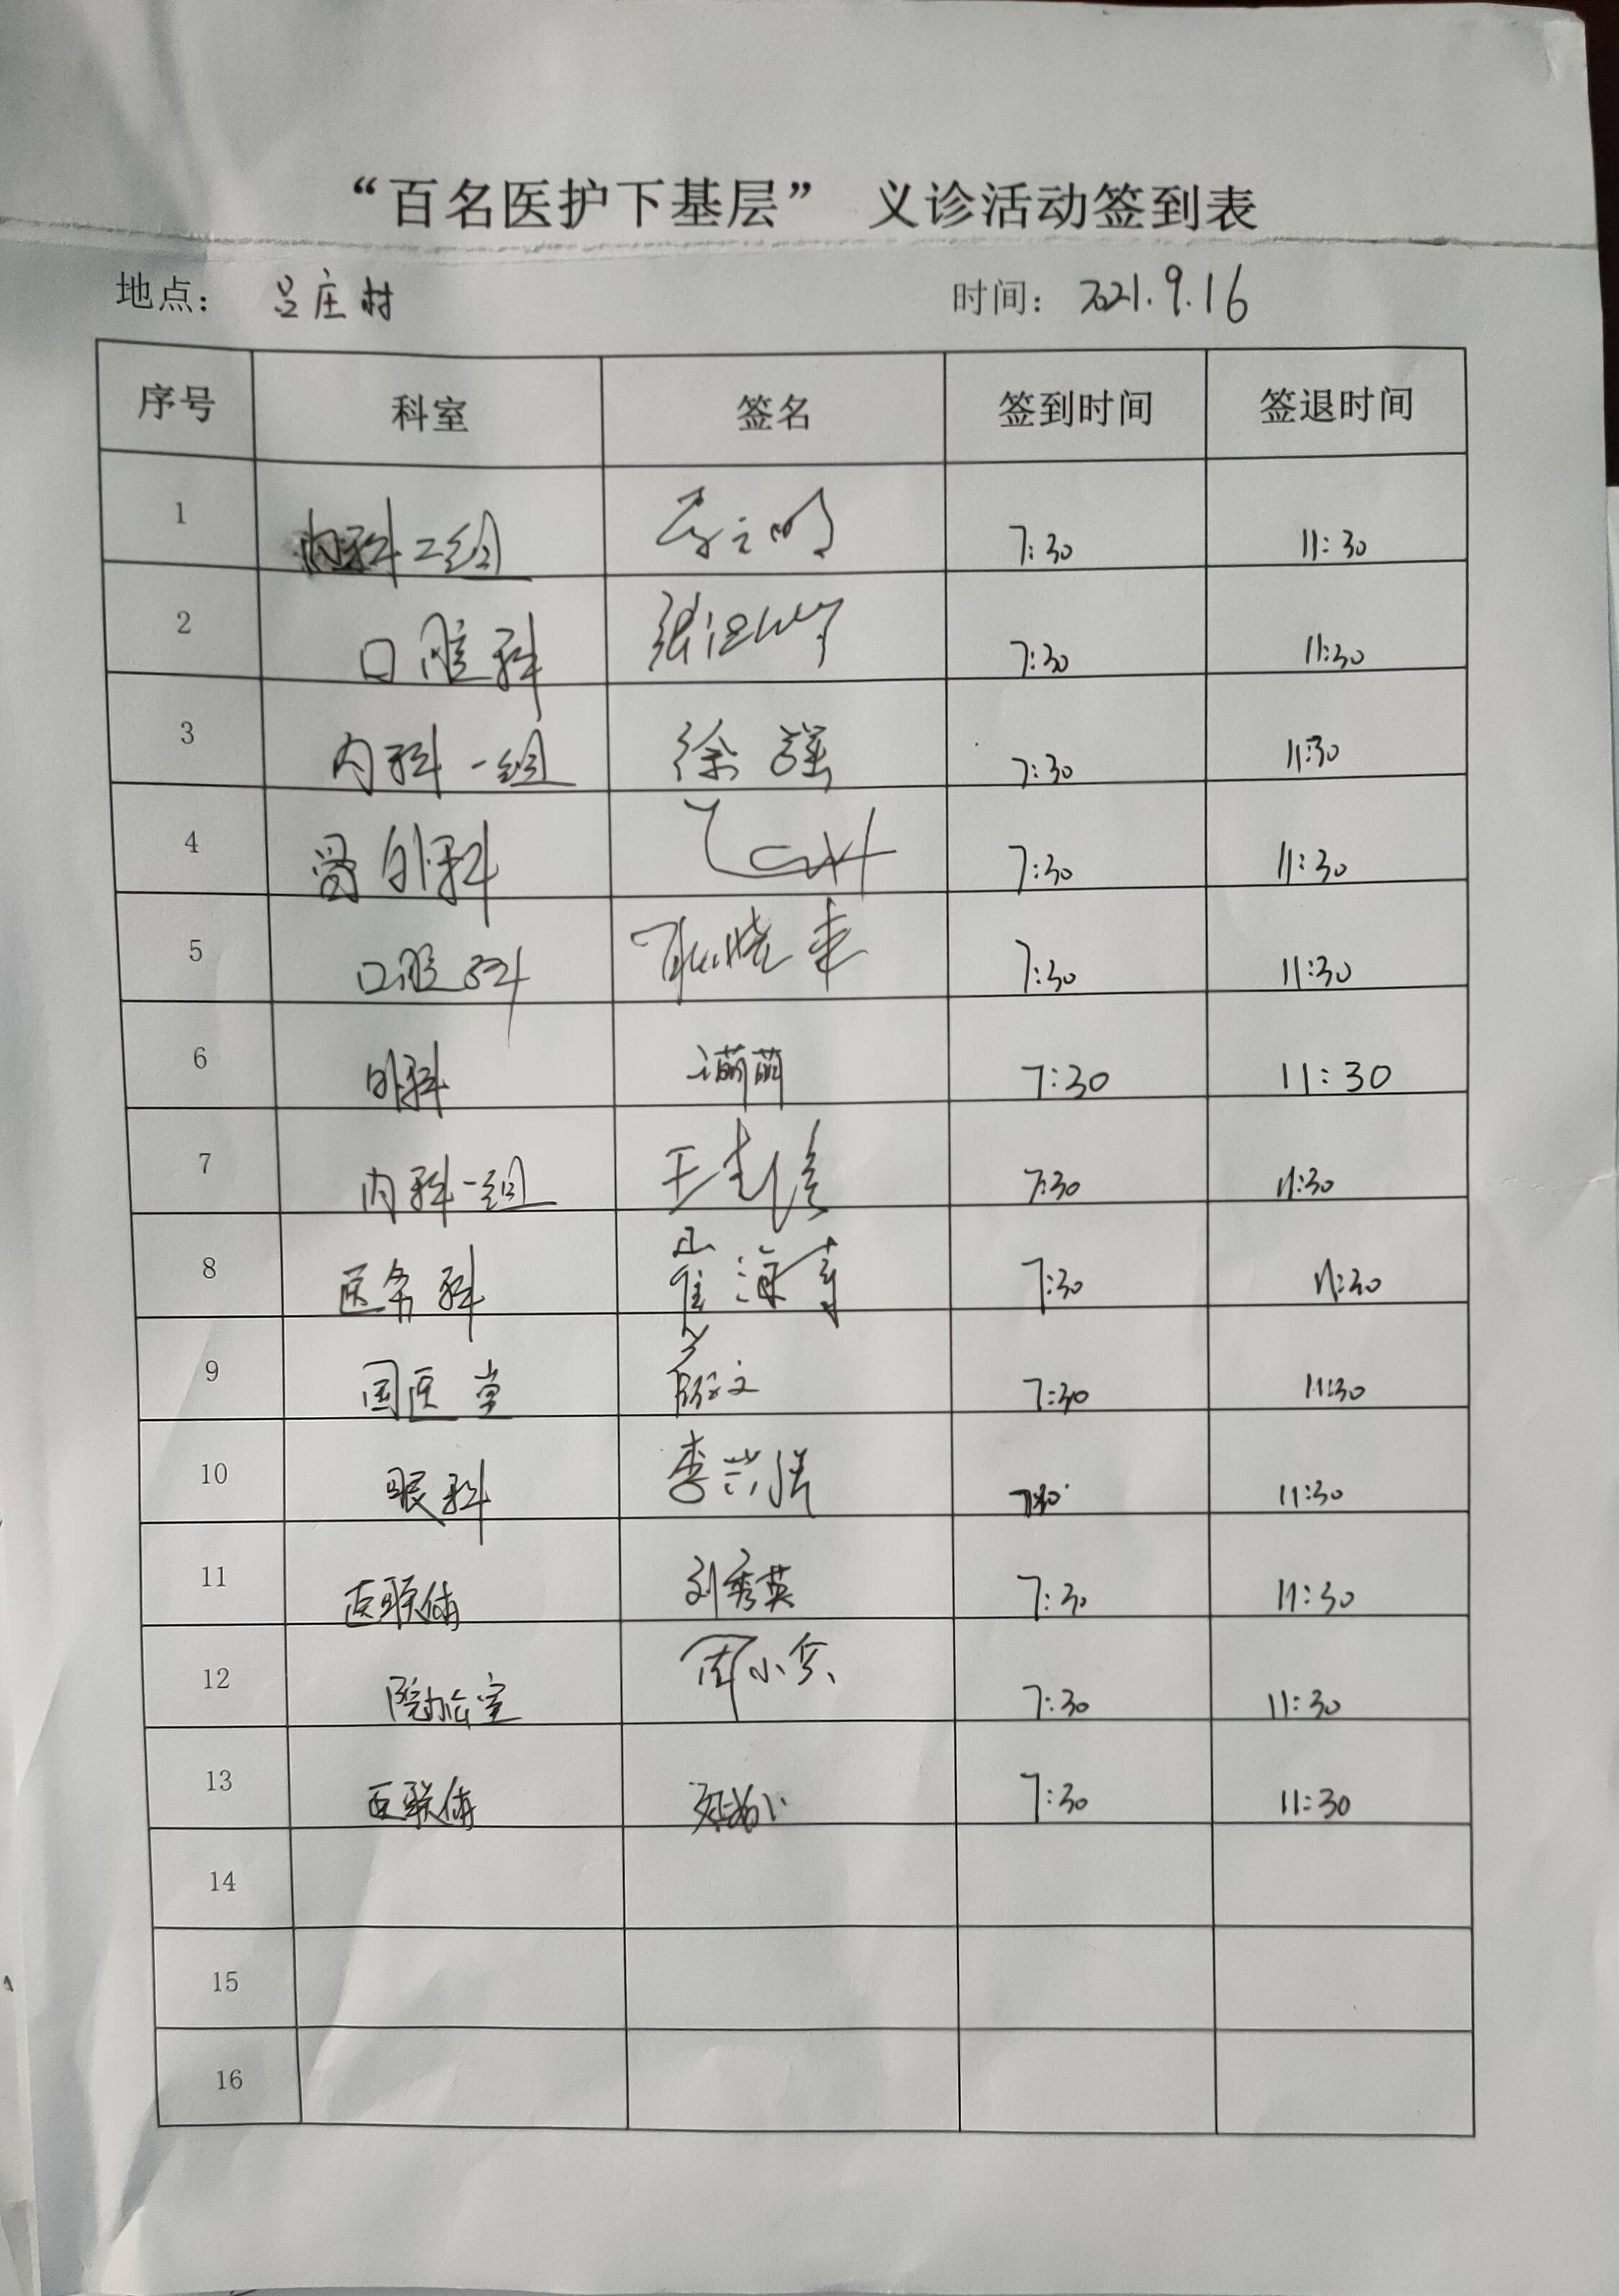 “百名医护下基层” 义诊活动签到表
地点： 吕庄村 时间： 2021.9.16
序号 科室 签名 签到时间 签退时间
1 内科二组 7:30 11:30
2 口腔科 7:30 11:30
3 内科一组 徐强 7:30 11:30
4 外科 7:30 11:30
5 口腔科 耿晓来 7:30 11:30
6 外科 7:30 11:30
7 内科一组 王 7:30 11:30
8 医务科 崔海青 7:30 11:30
9 国医堂 7:30 11:30
10 眼科 李 7:30 11:30
11 医联体 刘秀英 7:30 11:30
12 院办公室 周小兵 7:30 11:30
13 医联体 7:30 11:30
14
15
16